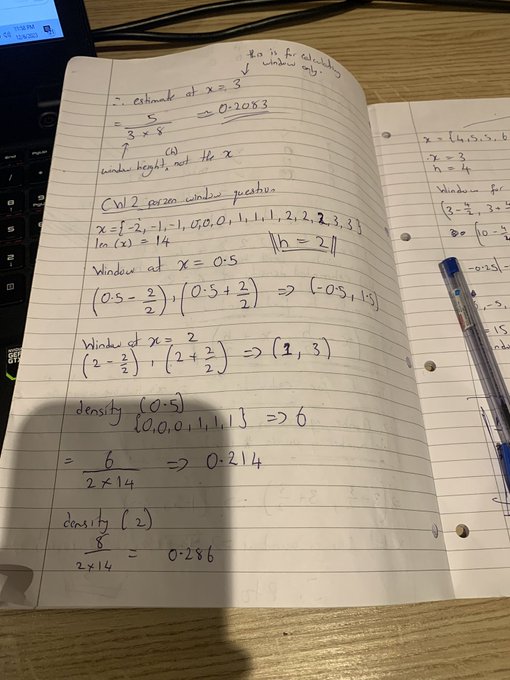 11:52 PM
12/6/2023
this is for calculating
window only.
∴ estimate at x = 3
= 5 / (3 × 8) ≃ 0.2083
window height (h), not the x
CW2 parzen window question
x = {-2, -1, -1, 0, 0, 0, 1, 1, 1, 2, 2, 2, 3, 3}
len (x) = 14
h = 2
Window at x = 0.5
(0.5 - 2/2), (0.5 + 2/2) => (-0.5, 1.5)
Window at x = 2
(2 - 2/2), (2 + 2/2) => (1, 3)
density (0.5)
{0,0,0,1,1,1} => 6
= 6 / (2 × 14) => 0.214
density (2)
8 / (2×14) = 0.286
x = {4, 5, 5, 6
x = 3
h = 4
Window for
(3 - 4/2, 3 +
(10 - 4/2
-0.25
= 15
GEF
GTX